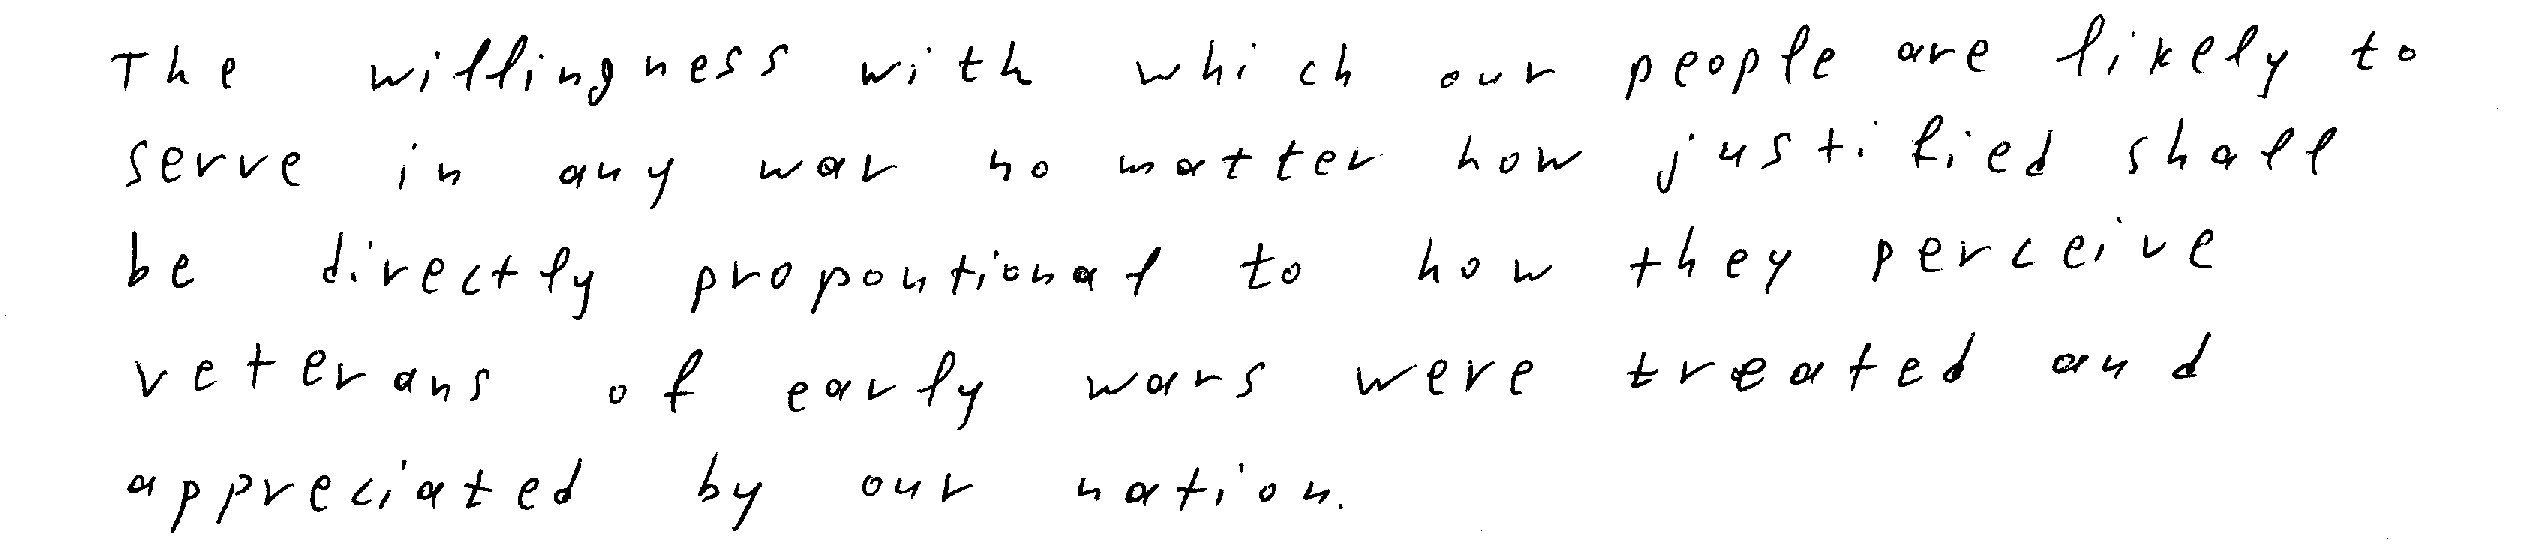 The willingness with which our people are likely to
serve in any war no matter how justified shall
be directly proportional to how they perceive
veterans of early wars were treated and
appreciated by our nation.